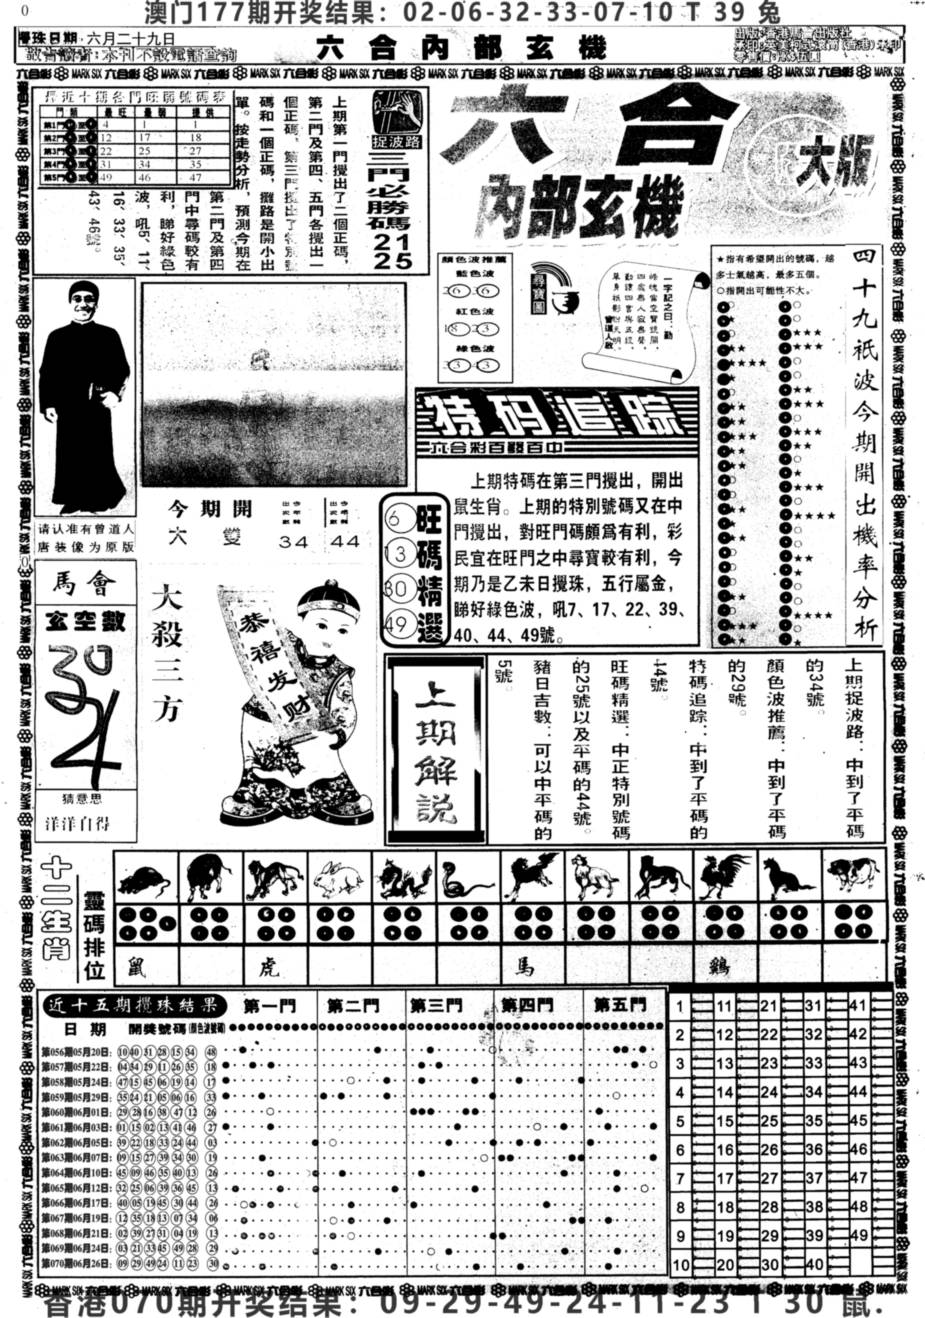 澳门177期开奖结果：02-06-32-33-07-10 T 39 兔
六月二十九日
六合內部玄機
六合
內部玄機
大版
門類 最旺 最弱 提供
第1門 4 1 1
第2門 12 17 18
第3門 22 25 27
第4門 31 34 35
第5門 49 46 47
捉波路
三門必勝碼
21
25
上期第一門攪出了二個正碼，
第二門及第四、五門各攪出一
個正碼，第三門攪出了特別號
碼和一個正碼，攤路是開小出
單。按走勢分析，預測今期在
第二門及第四
門中尋碼較有
利，睇好綠色
波，吼5、11、
16、33、35、
43、46
顏色波推薦
藍色波
26 36
紅色波
18 23
綠色波
33 43
尋寶圖
一字記之曰：勤
★指有希望開出的號碼，越
多士氣越高，最多五個。
○指開出可能性不大。
四十九祇波今期開出機率分析
请认准有曾道人
唐装像为原版
今期開
六 雙
34 44
特码追踪
六合彩百發百中
上期特碼在第三門攪出，開出
鼠生肖。上期的特別號碼又在中
門攪出，對旺門碼頗爲有利，彩
民宜在旺門之中尋寶較有利，今
期乃是乙未日攪珠，五行屬金，
睇好綠色波，吼7、17、22、39、
40、44、49號。
旺碼精選
6
13
30
49
馬會
玄空數
猜意思
洋洋自得
大殺三方
恭禧发财
上期解說
上期捉波路：中到了平碼
的34號。
顏色波推薦：中到了平碼
的29號。
特碼追踪：中到了平碼的
44號。
旺碼精選：中正特別號碼
的25號以及平碼的44號。
豬日吉數：可以中平碼的
5號。
十二生肖
靈碼排位
鼠 虎 馬 鷄
近十五期攪珠結果
第一門 第二門 第三門 第四門 第五門
日期 開獎號碼
第056期05月20日: 10 40 31 28 15 34 48
第057期05月22日: 04 34 29 11 26 35 18
第058期05月24日: 47 15 45 06 19 14 17
第059期05月29日: 35 24 21 05 06 16 33
第060期06月01日: 29 28 16 38 47 12 26
第061期06月03日: 01 15 02 13 41 46 27
第062期06月05日: 39 22 18 33 24 44 03
第063期06月07日: 09 15 27 39 34 30 19
第064期06月10日: 45 09 46 35 40 13 26
第065期06月12日: 32 25 06 39 36 45 13
第066期06月17日: 40 05 19 45 30 44 26
第067期06月19日: 12 35 18 13 07 34 06
第068期06月21日: 02 39 27 31 04 19 13
第069期06月24日: 03 21 33 45 49 28 29
第070期06月26日: 09 29 49 24 11 23 30
1 11 21 31 41
2 12 22 32 42
3 13 23 33 43
4 14 24 34 44
5 15 25 35 45
6 16 26 36 46
7 17 27 37 47
8 18 28 38 48
9 19 29 39 49
10 20 30 40
香港070期开奖结果：09-29-49-24-11-23 T 30 鼠.